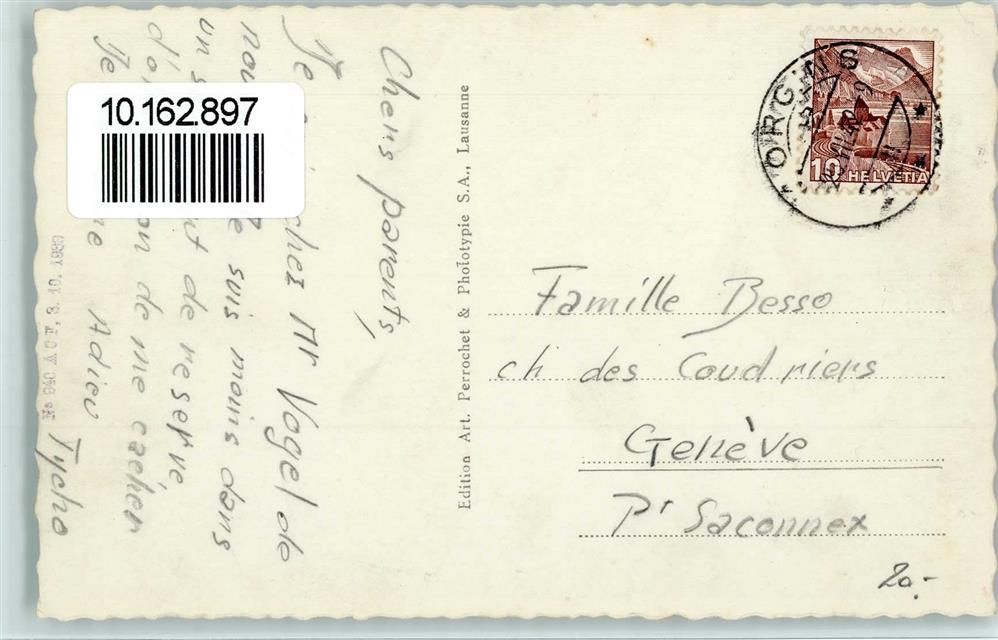 10.162.897
Chers parents,
Je chez Mr Vogel de
nou suis moins dans
un s t de reserve
d'o on de me cacher
Je ne Adieu Tycho
No 940 A C F, 3. 10. 1930
Edition Art. Perrochet & Phototypie S.A., Lausanne
MORGINS
10 HELVETIA
Famille Besso
ch des Coudriers
Genève
Pt Saconnex
20.-